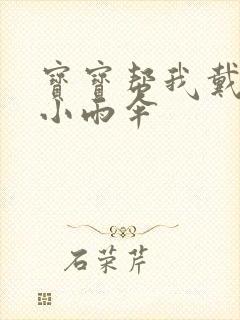 寶寶帮我戴
小雨伞
石荣芹